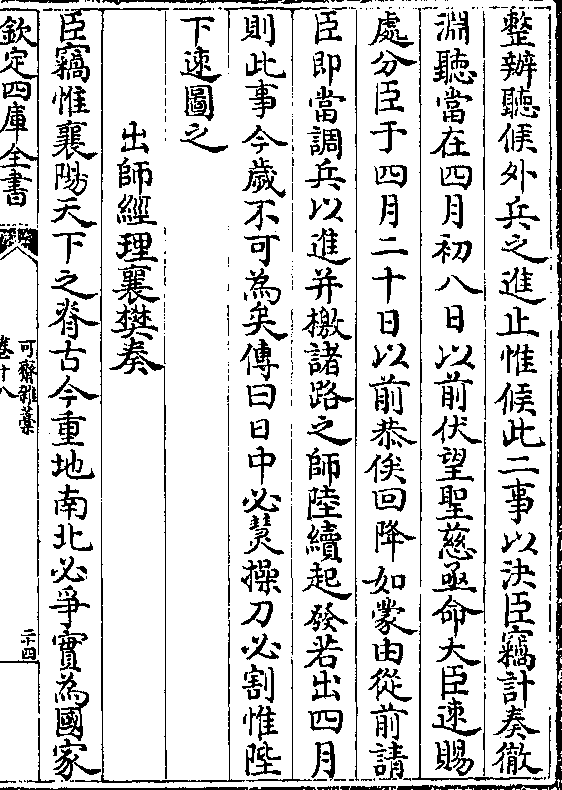 整辦聽候外兵之進止惟候此二事以決臣竊計奏徹
淵聽當在四月初八日以前伏望聖慈亟命大臣速賜
處分臣于四月二十日以前恭俟回降如蒙由從前請
臣即當調兵以進并檄諸路之師陸續起發若出四月
則此事今歲不可為矣傳曰日中必熭操刀必割惟陛
下速圖之
出師經理襄樊奏
臣竊惟襄陽天下之脊古今重地南北必爭實為國家
欽定四庫全書
可齋雜藁
卷十八
二十四